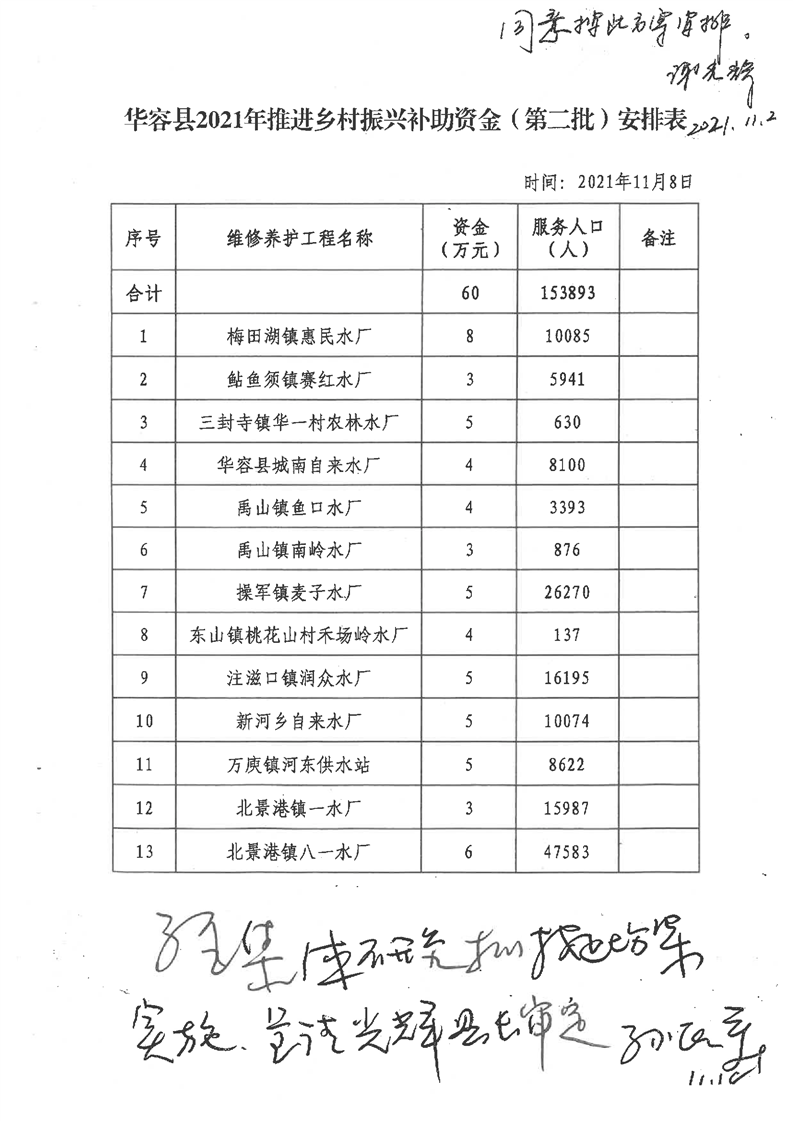 同意按此方案安排。
谢光辉
华容县2021年推进乡村振兴补助资金（第二批）安排表
2021.11.2
时间：2021年11月8日
序号 维修养护工程名称 资金（万元） 服务人口（人） 备注
合计 60 153893
1 梅田湖镇惠民水厂 8 10085
2 鲇鱼须镇赛红水厂 3 5941
3 三封寺镇华一村农林水厂 5 630
4 华容县城南自来水厂 4 8100
5 禹山镇鱼口水厂 4 3393
6 禹山镇南岭水厂 3 876
7 操军镇麦子水厂 5 26270
8 东山镇桃花山村禾场岭水厂 4 137
9 注滋口镇润众水厂 5 16195
10 新河乡自来水厂 5 10074
11 万庾镇河东供水站 5 8622
12 北景港镇一水厂 3 15987
13 北景港镇八一水厂 6 47583
经集体研究拟按此方案
实施、呈请光辉县长审定